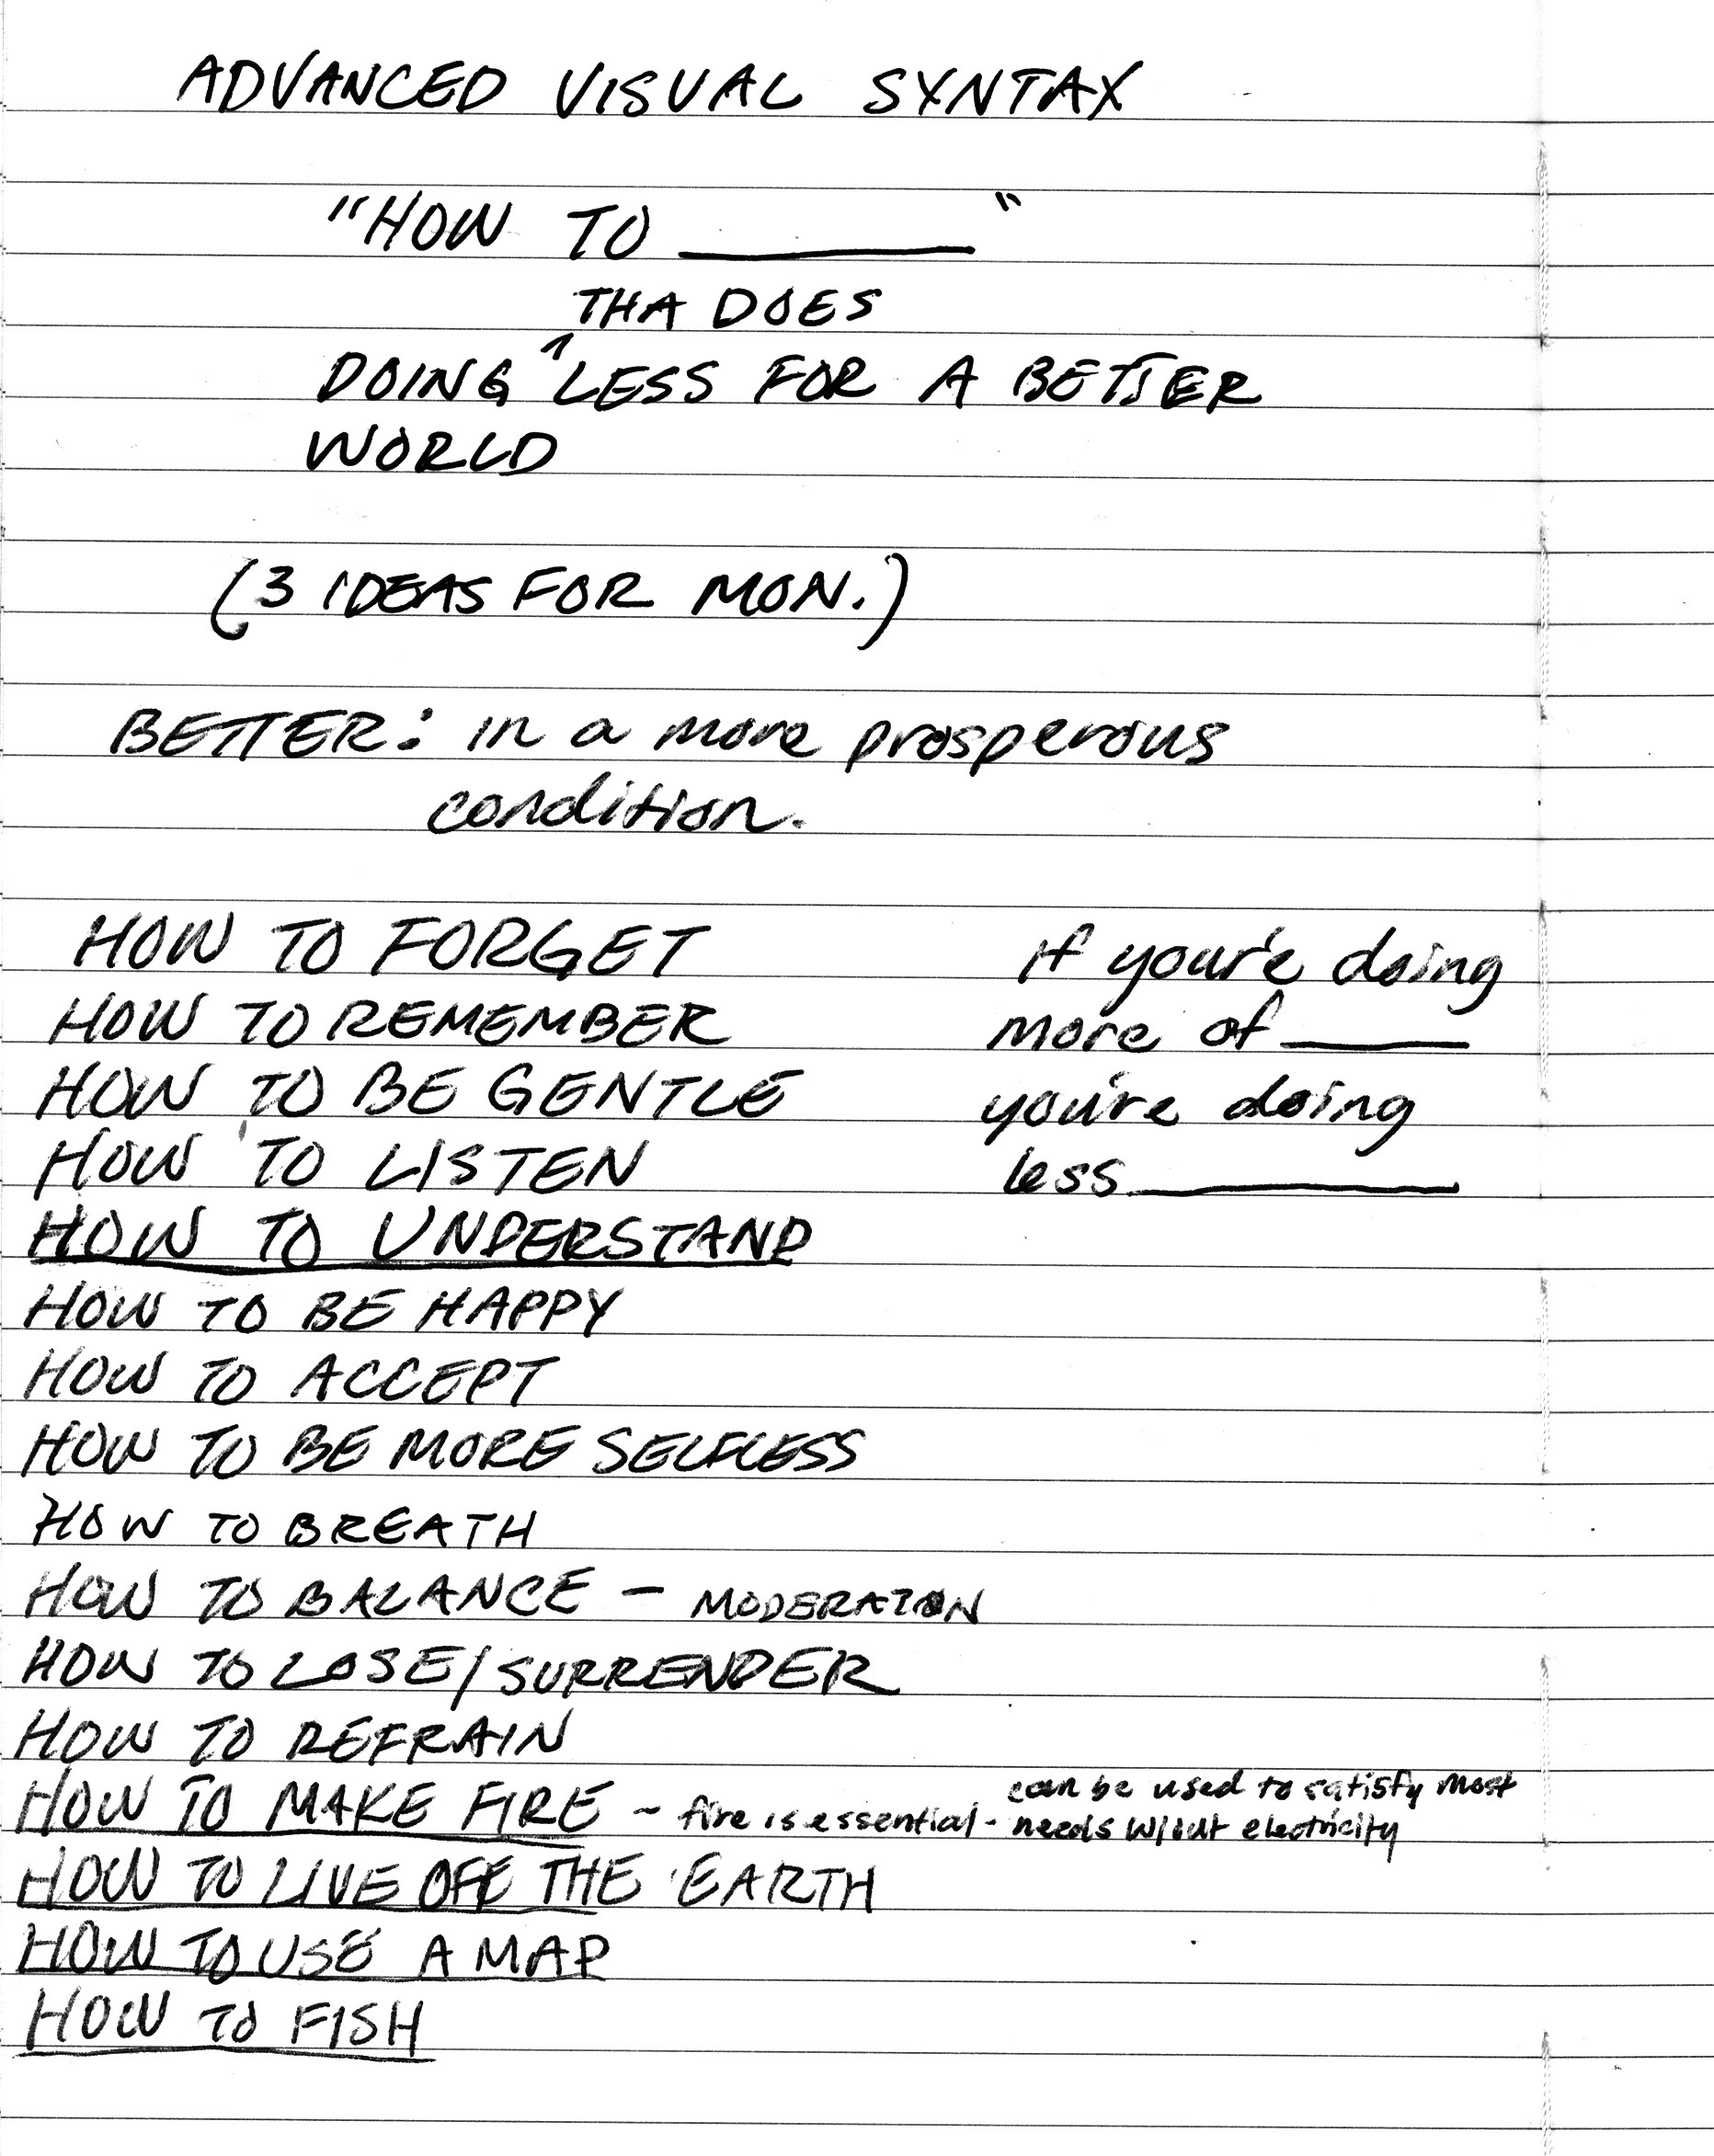 ADVANCED VISUAL SYNTAX
"HOW TO ______"
THA DOES
DOING ^ LESS FOR A BETTER
WORLD
(3 IDEAS FOR MON.)
BETTER: in a more prosperous
condition.
HOW TO FORGET
HOW TO REMEMBER
HOW TO BE GENTLE
HOW TO LISTEN
HOW TO UNDERSTAND
HOW TO BE HAPPY
HOW TO ACCEPT
HOW TO BE MORE SELFLESS
HOW TO BREATH
HOW TO BALANCE - MODERATION
HOW TO LOSE/SURRENDER
HOW TO REFRAIN
HOW TO MAKE FIRE - fire is essential - can be used to satisfy most
needs w/out electricity
HOW TO LIVE OFF THE EARTH
HOW TO USE A MAP
HOW TO FISH
If you're doing
more of ____
you're doing
less ______